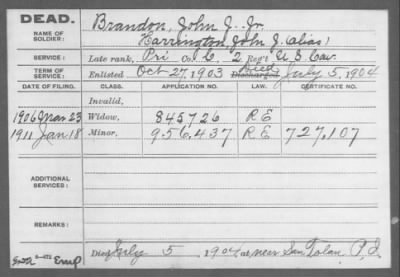 DEAD.
NAME OF SOLDIER:
Brandon, John J. Jr.
Harrington, John J. (alias)
SERVICE: Late rank, Pri Co. C, 2 Reg't U S Cav.
TERM OF SERVICE: Enlisted Oct 27, 1903 Discharged Died July 5, 1904
DATE OF FILING. CLASS. APPLICATION NO. LAW. CERTIFICATE NO.
Invalid,
1906 Mar 23 Widow, 845726 R E
1911 Jan. 18 Minor. 956,437 R E 727,107
ADDITIONAL SERVICES:
REMARKS:
Died July 5, 1904 at near San Tolan, P. I.